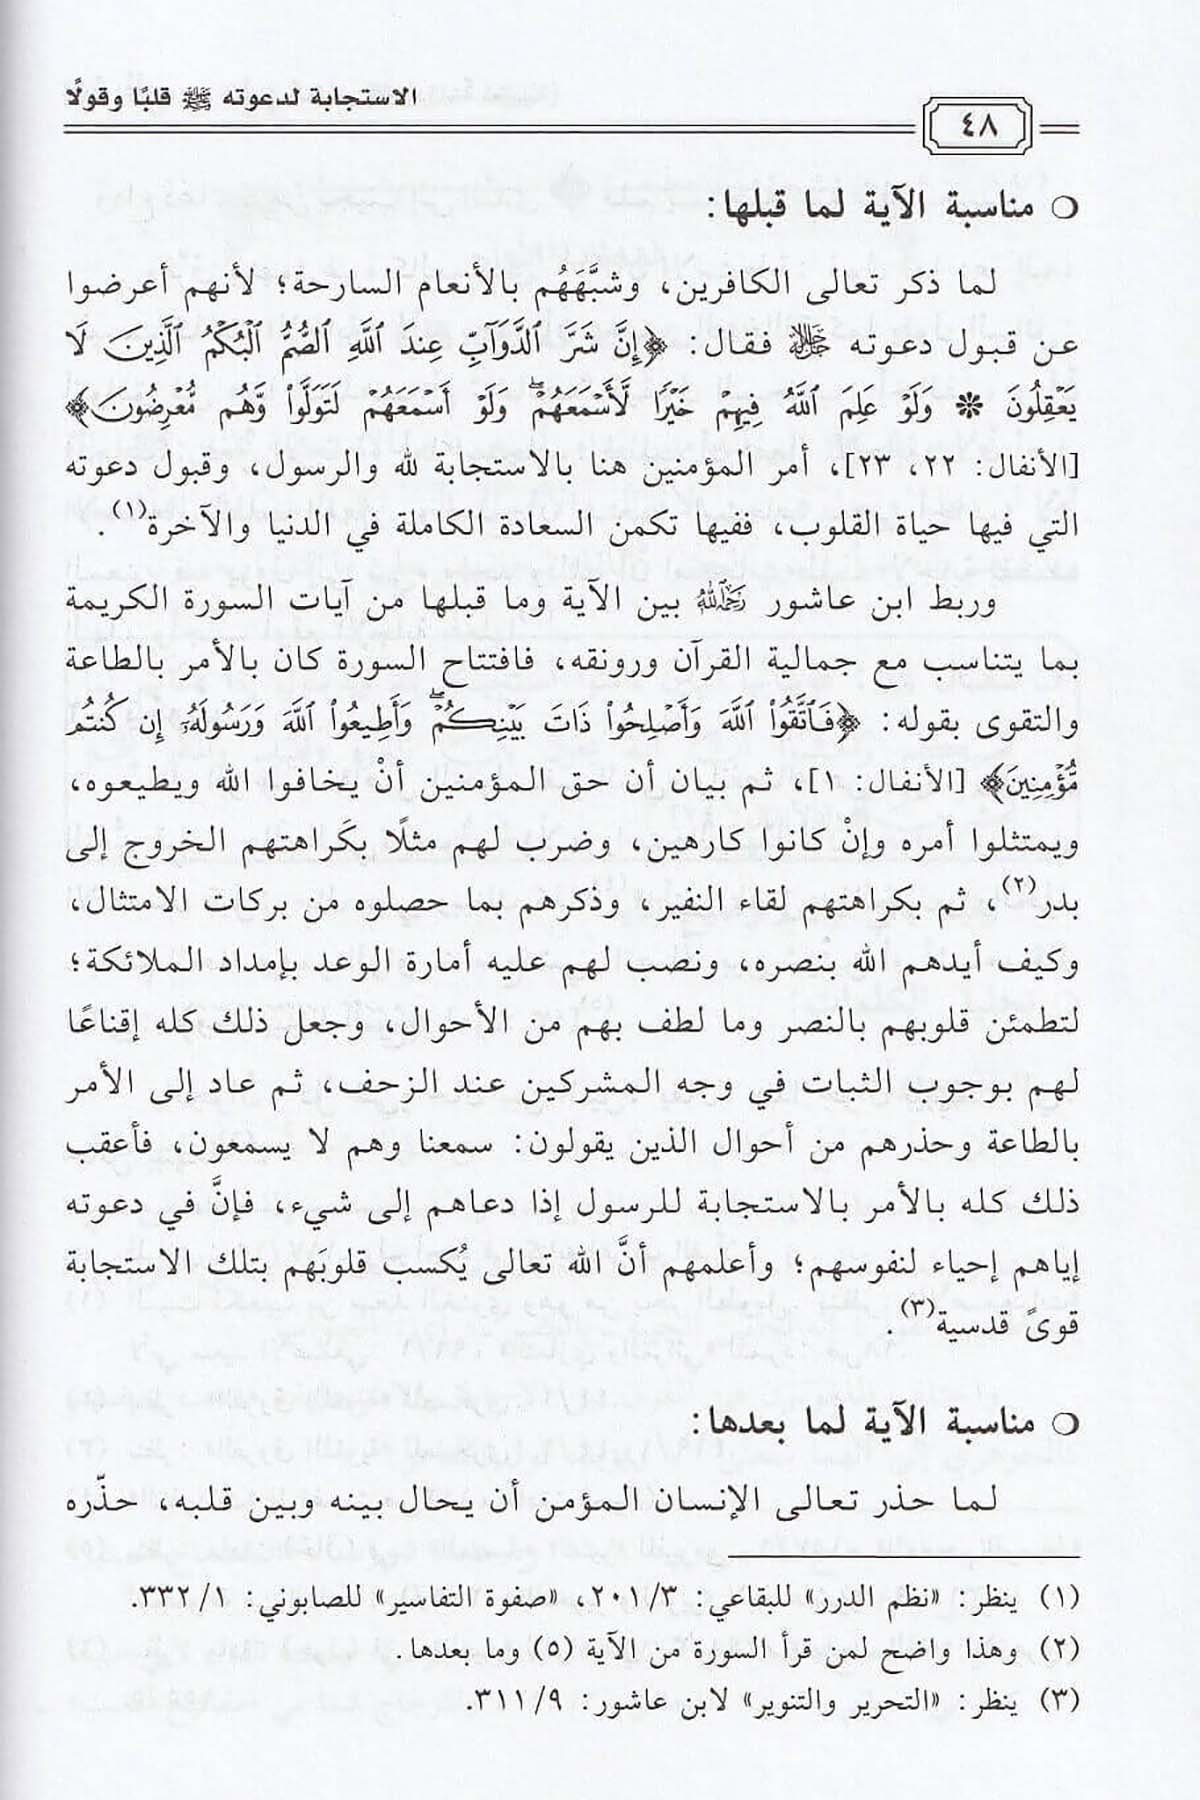 الاستجابة لدعوته ﷺ قلبًا وقولًا
٤٨
❍ مناسبة الآية لما قبلها:
لما ذكر تعالى الكافرين، وشبَّهَهُم بالأنعام السارحة؛ لأنهم أعرضوا
عن قبول دعوته ﷻ فقال: ﴿إِنَّ شَرَّ ٱلدَّوَآبِّ عِندَ ٱللَّهِ ٱلصُّمُّ ٱلۡبُكۡمُ ٱلَّذِينَ لَا
يَعۡقِلُونَ * وَلَوۡ عَلِمَ ٱللَّهُ فِيهِمۡ خَيۡرٗا لَّأَسۡمَعَهُمۡۖ وَلَوۡ أَسۡمَعَهُمۡ لَتَوَلَّواْ وَّهُم مُّعۡرِضُونَ﴾
[الأنفال: ٢٢، ٢٣]، أمر المؤمنين هنا بالاستجابة لله والرسول، وقبول دعوته
التي فيها حياة القلوب، ففيها تكمن السعادة الكاملة في الدنيا والآخرة(١).
وربط ابن عاشور رَحِمَهُ اللَّهُ بين الآية وما قبلها من آيات السورة الكريمة
بما يتناسب مع جمالية القرآن ورونقه، فافتتاح السورة كان بالأمر بالطاعة
والتقوى بقوله: ﴿فَٱتَّقُواْ ٱللَّهَ وَأَصۡلِحُواْ ذَاتَ بَيۡنِكُمۡۖ وَأَطِيعُواْ ٱللَّهَ وَرَسُولَهُۥٓ إِن كُنتُم
مُّؤۡمِنِينَ﴾ [الأنفال: ١]، ثم بيان أن حق المؤمنين أنْ يخافوا الله ويطيعوه،
ويمتثلوا أمره وإنْ كانوا كارهين، وضرب لهم مثلًا بكَراهتهم الخروج إلى
بدر(٢)، ثم بكراهتهم لقاء النفير، وذكرهم بما حصلوه من بركات الامتثال،
وكيف أيدهم الله بنصره، ونصب لهم عليه أمارة الوعد بإمداد الملائكة؛
لتطمئن قلوبهم بالنصر وما لطف بهم من الأحوال، وجعل ذلك كله إقناعًا
لهم بوجوب الثبات في وجه المشركين عند الزحف، ثم عاد إلى الأمر
بالطاعة وحذرهم من أحوال الذين يقولون: سمعنا وهم لا يسمعون، فأعقب
ذلك كله بالأمر بالاستجابة للرسول إذا دعاهم إلى شيء، فإنَّ في دعوته
إياهم إحياء لنفوسهم؛ وأعلمهم أنَّ الله تعالى يُكسب قلوبَهم بتلك الاستجابة
قوىً قدسية(٣).
❍ مناسبة الآية لما بعدها:
لما حذر تعالى الإنسان المؤمن أن يحال بينه وبين قلبه، حذّره
(١) ينظر: «نظم الدرر» للبقاعي: ٢٠١/٣، «صفوة التفاسير» للصابوني: ٣٣٢/١.
(٢) وهذا واضح لمن قرأ السورة من الآية (٥) وما بعدها.
(٣) ينظر: «التحرير والتنوير» لابن عاشور: ٣١١/٩.